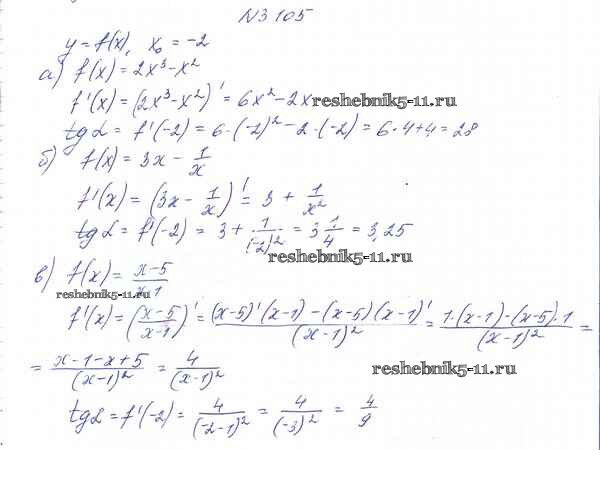 №3 105
y=f(x), x₀ = -2
а) f(x)=2x³-x²
f'(x)=(2x³-x²)'=6x²-2x reshebnik5-11.ru
tg L = f'(-2)=6·(-2)²-2·(-2)=6·4+4=28
б) f(x)=3x - 1/x
f'(x)=(3x - 1/x)'= 3 + 1/x²
tg L=f'(-2) = 3+ 1/(-2)² = 3 1/4 = 3,25
reshebnik5-11.ru
в) f(x)= (x-5)/(x-1)
reshebnik5-11.ru
f'(x)=((x-5)/(x-1))' = ((x-5)'(x-1)-(x-5)(x-1)')/(x-1)² = (1·(x-1)-(x-5)·1)/(x-1)² =
= (x-1-x+5)/(x-1)² = 4/(x-1)² reshebnik5-11.ru
tg L=f'(-2)= 4/(-2-1)² = 4/(-3)² = 4/9